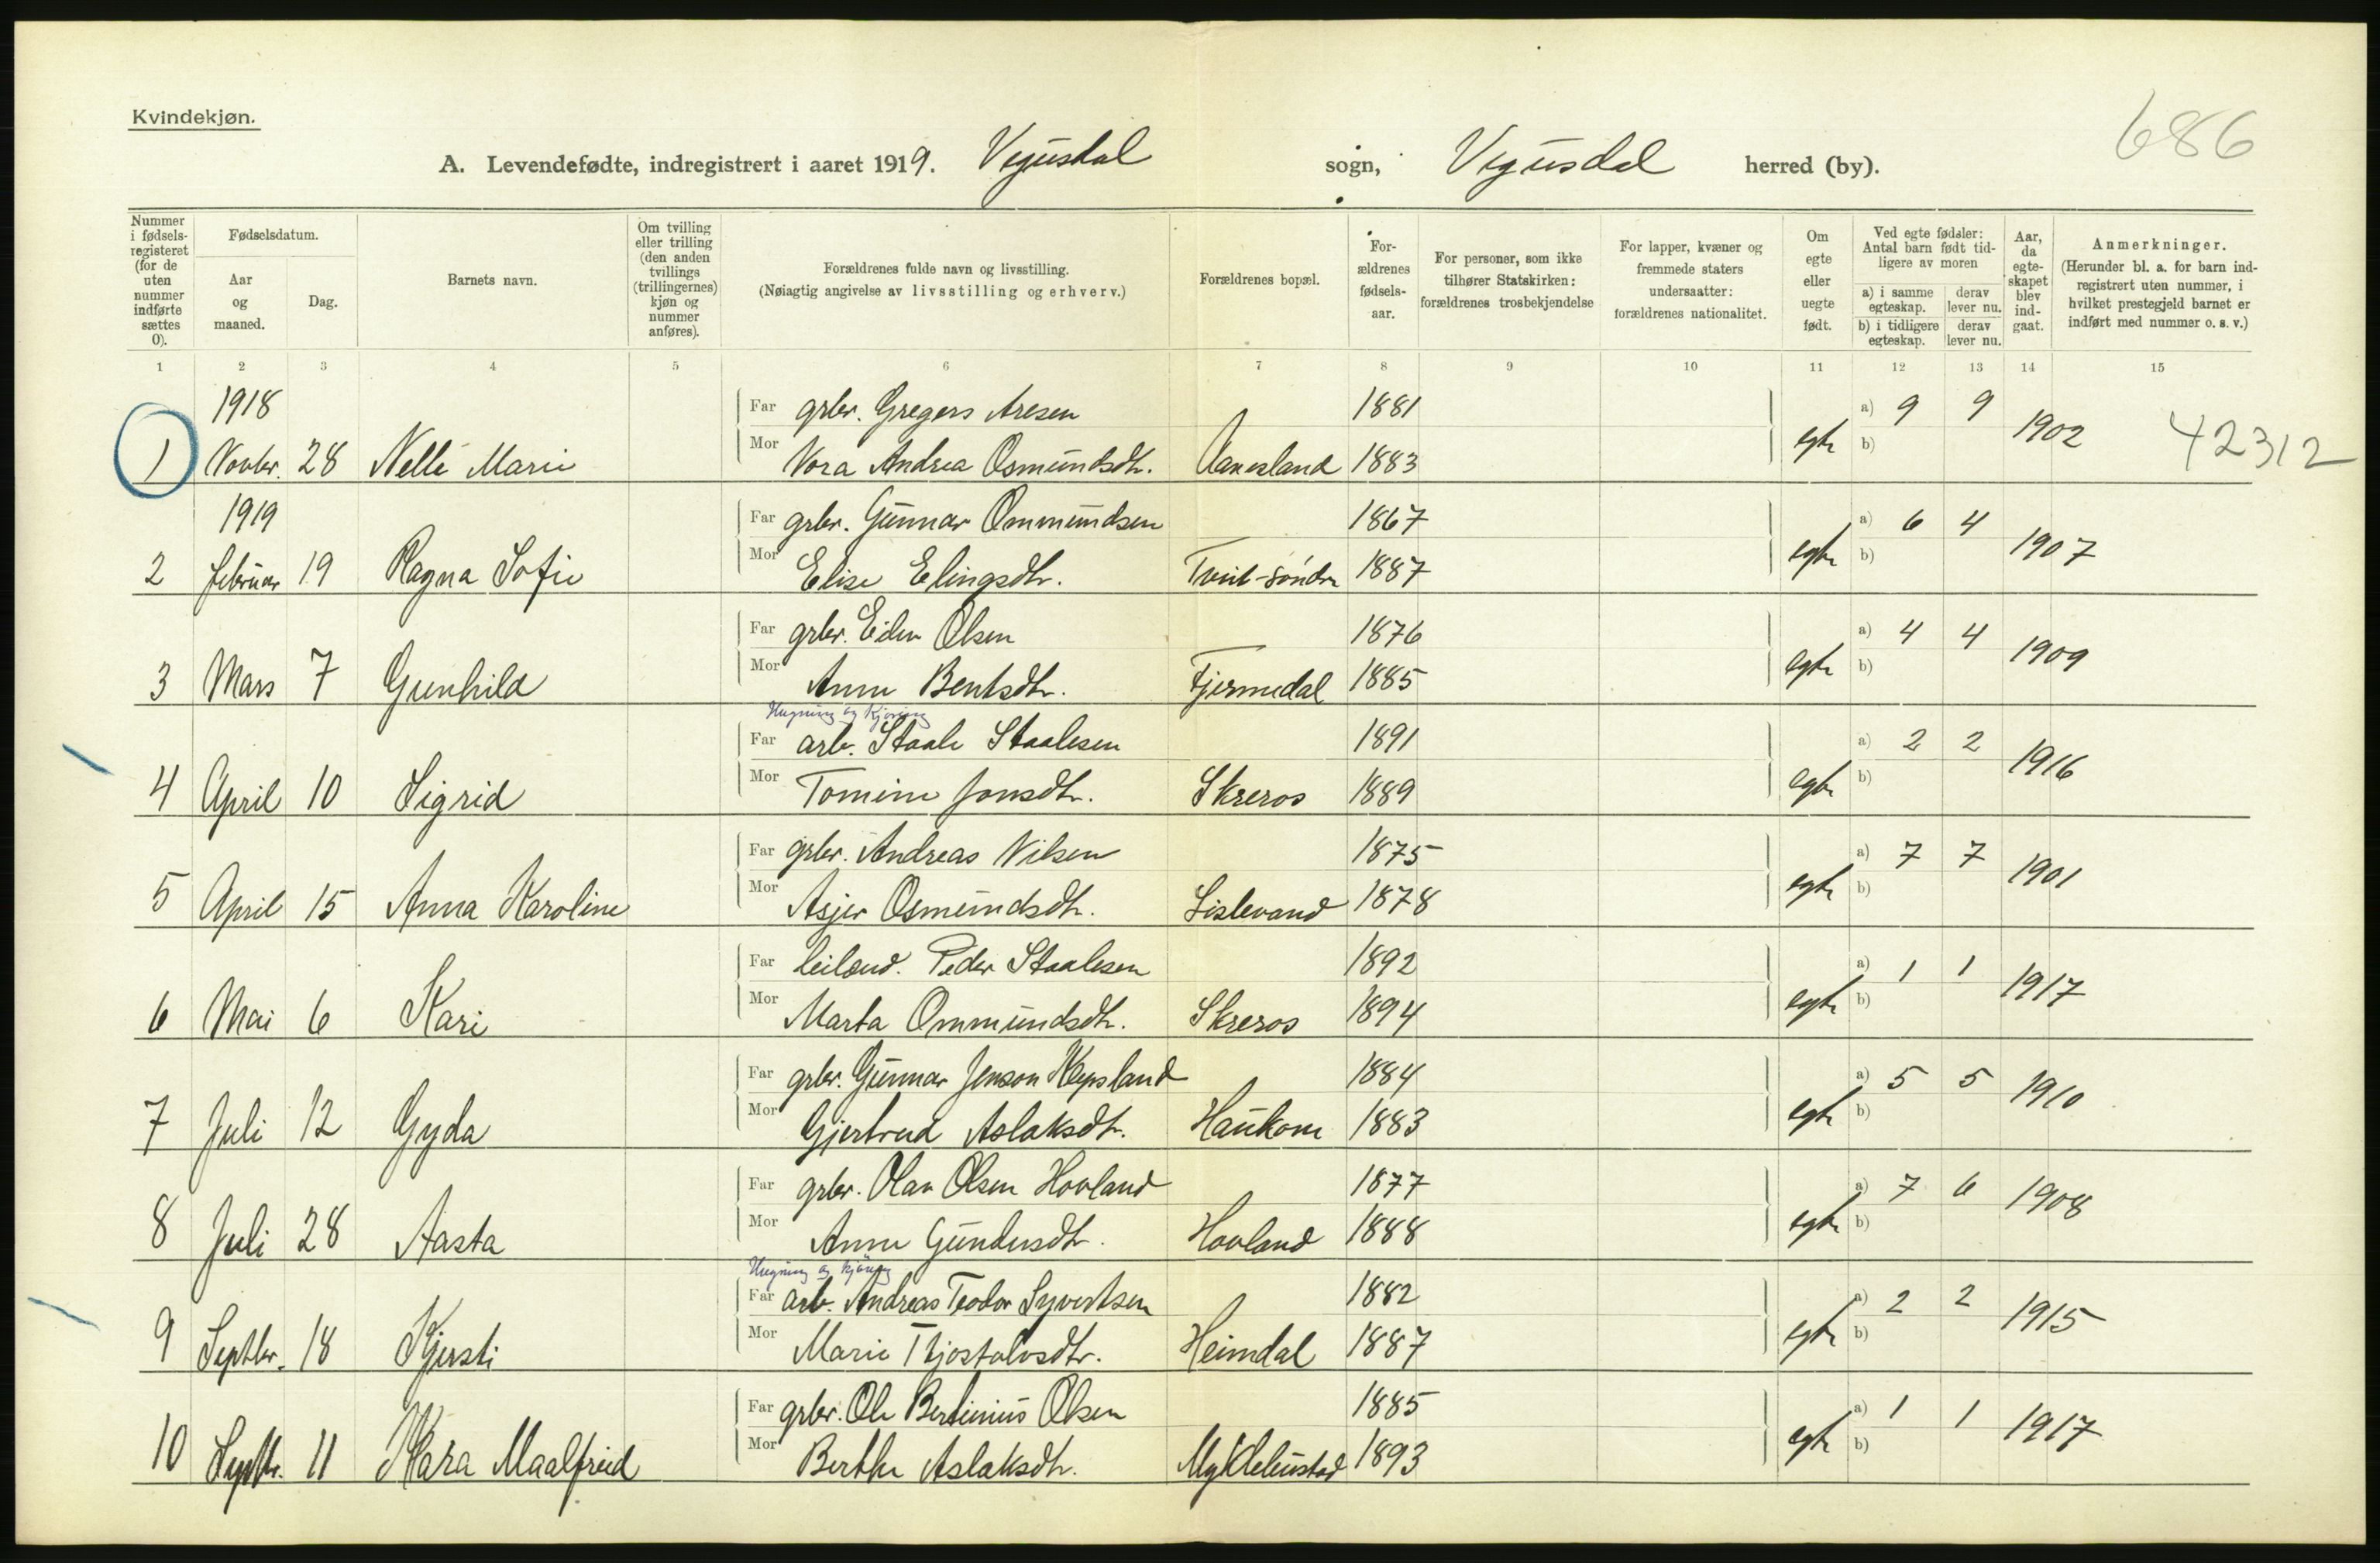 Kvindekjøn.
686
A. Levendefødte, indregistrert i aaret 1919. Vegusdal sogn, Vegusdal herred (by).
Nummer i fødsels-registeret (for de uten nummer indførte sættes 0).
Fødselsdatum.
Aar og maaned.
Dag.
Barnets navn.
Om tvilling eller trilling (den anden tvillings (trillingernes) kjøn og nummer anføres).
Forældrenes fulde navn og livsstilling.
(Nøiagtig angivelse av livsstilling og erhverv.)
Forældrenes bopæl.
For-ældrenes fødsels-aar.
For personer, som ikke tilhører Statskirken: forældrenes trosbekjendelse
For lapper, kvæner og fremmede staters undersaatter: forældrenes nationalitet.
Om egte eller uegte født.
Ved egte fødsler: Antal barn født tid-ligere av moren
a) i samme egteskap. derav lever nu.
b) i tidligere egteskap. derav lever nu.
Aar, da egte-skapet blev ind-gaat.
Anmerkninger.
(Herunder bl. a. for barn ind-registrert uten nummer, i hvilket prestegjeld barnet er indført med nummer o. s. v.)
1 2 3 4 5 6 7 8 9 10 11 12 13 14 15
1918 Far grbr. Gregers Aresen 1881 a) 9 9
1 Novbr. 28 Nelli Marie Mor Nora Andrea Osmundsdtr. Aanesland 1883 egte b) 1902 42312
1919 Far grbr. Gunnar Ommundsen 1867 a) 6 4
2 Februar 19 Ragna Sofie Mor Elise Elingsdtr. Tveit-søndre 1887 egte b) 1907
Far grbr. Eilev Olsen 1876 a) 4 4
3 Mars 7 Gunhild Mor Anne Bentsdtr. Fjermedal 1885 egte b) 1909
Hugning og Kjøring
Far arb. Staale Staalesen 1891 a) 2 2
4 April 10 Sigrid Mor Tomine Jonsdtr. Skreros 1889 egte b) 1916
Far grbr. Andreas Nilsen 1875 a) 7 7
5 April 15 Anna Karoline Mor Asjer Osmundsdtr. Lislevand 1878 egte b) 1901
Far leilænd. Peder Staalesen 1892 a) 1 1
6 Mai 6 Kari Mor Marta Ommundsdtr. Skreros 1894 egte b) 1917
Far grbr. Gunnar Jenson Væpsland 1884 a) 5 5
7 Juli 12 Gyda Mor Gjertrud Aslaksdtr. Haukom 1883 egte b) 1910
Far grbr. Olav Olsen Hovland 1877 a) 7 6
8 Juli 28 Aasta Mor Anne Gundersdtr. Hovland 1888 egte b) 1908
Hugning og kjøring
Far arb. Andreas Teodor Syvertsen 1882 a) 2 2
9 Septbr. 18 Kjersti Mor Marie Tjostolvsdtr. Heimdal 1887 egte b) 1915
Far grbr. Ole Bertinius Olsen 1885 a) 1 1
10 Septbr. 11 Kara Maalfrid Mor Berthe Aslaksdtr. Myklebustad 1893 egte b) 1917